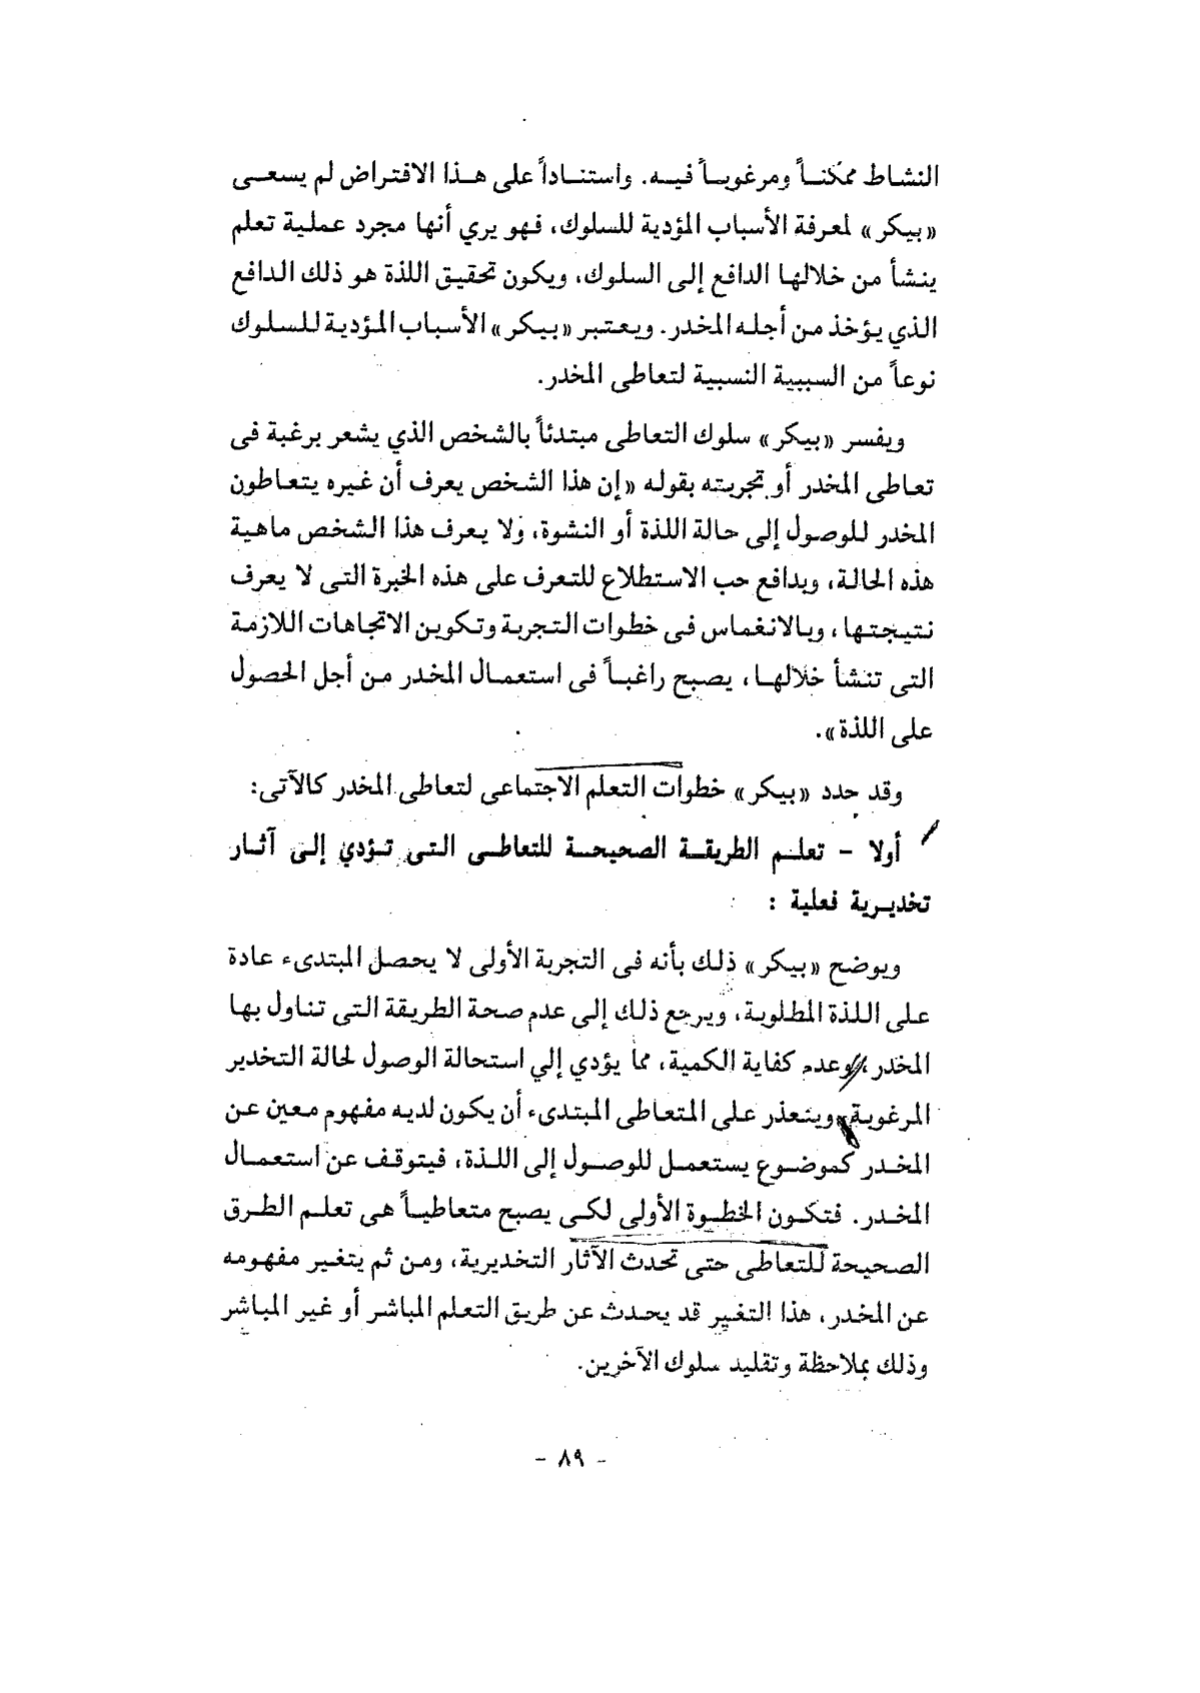 النشاط ممكناً ومرغوباً فيه. واستناداً على هذا الافتراض لم يسعى
«بيكر» لمعرفة الأسباب المؤدية للسلوك، فهو يري أنها مجرد عملية تعلم
ينشأ من خلالها الدافع إلى السلوك، ويكون تحقيق اللذة هو ذلك الدافع
الذي يؤخذ من أجله المخدر. ويعتبر «بيكر» الأسباب المؤدية للسلوك
نوعاً من السببية النسبية لتعاطى المخدر.
ويفسر «بيكر» سلوك التعاطى مبتدئاً بالشخص الذي يشعر برغبة فى
تعاطى المخدر أو تجربته بقوله «إن هذا الشخص يعرف أن غيره يتعاطون
المخدر للوصول إلى حالة اللذة أو النشوة، ولا يعرف هذا الشخص ماهية
هذه الحالة، وبدافع حب الاستطلاع للتعرف على هذه الخبرة التى لا يعرف
نتيجتها، وبالانغماس فى خطوات التجربة وتكوين الاتجاهات اللازمة
التى تنشأ خلالها، يصبح راغباً فى استعمال المخدر من أجل الحصول
على اللذة».
وقد حدد «بيكر» خطوات التعلم الاجتماعى لتعاطى المخدر كالآتى:
أولا - تعلم الطريقة الصحيحة للتعاطى التى تؤدي إلى آثار
تخديرية فعلية :
ويوضح «بيكر» ذلك بأنه فى التجربة الأولى لا يحصل المبتدىء عادة
على اللذة المطلوبة، ويرجع ذلك إلى عدم صحة الطريقة التى تناول بها
المخدر، وعدم كفاية الكمية، مما يؤدي إلي استحالة الوصول لحالة التخدير
المرغوبة، ويتعذر على المتعاطى المبتدىء أن يكون لديه مفهوم معين عن
المخدر كموضوع يستعمل للوصول إلى اللذة، فيتوقف عن استعمال
المخدر. فتكون الخطوة الأولى لكى يصبح متعاطياً هى تعلم الطرق
الصحيحة للتعاطى حتى تحدث الآثار التخديرية، ومن ثم يتغير مفهومه
عن المخدر، هذا التغير قد يحدث عن طريق التعلم المباشر أو غير المباشر
وذلك بملاحظة وتقليد سلوك الآخرين.
- ٨٩ -